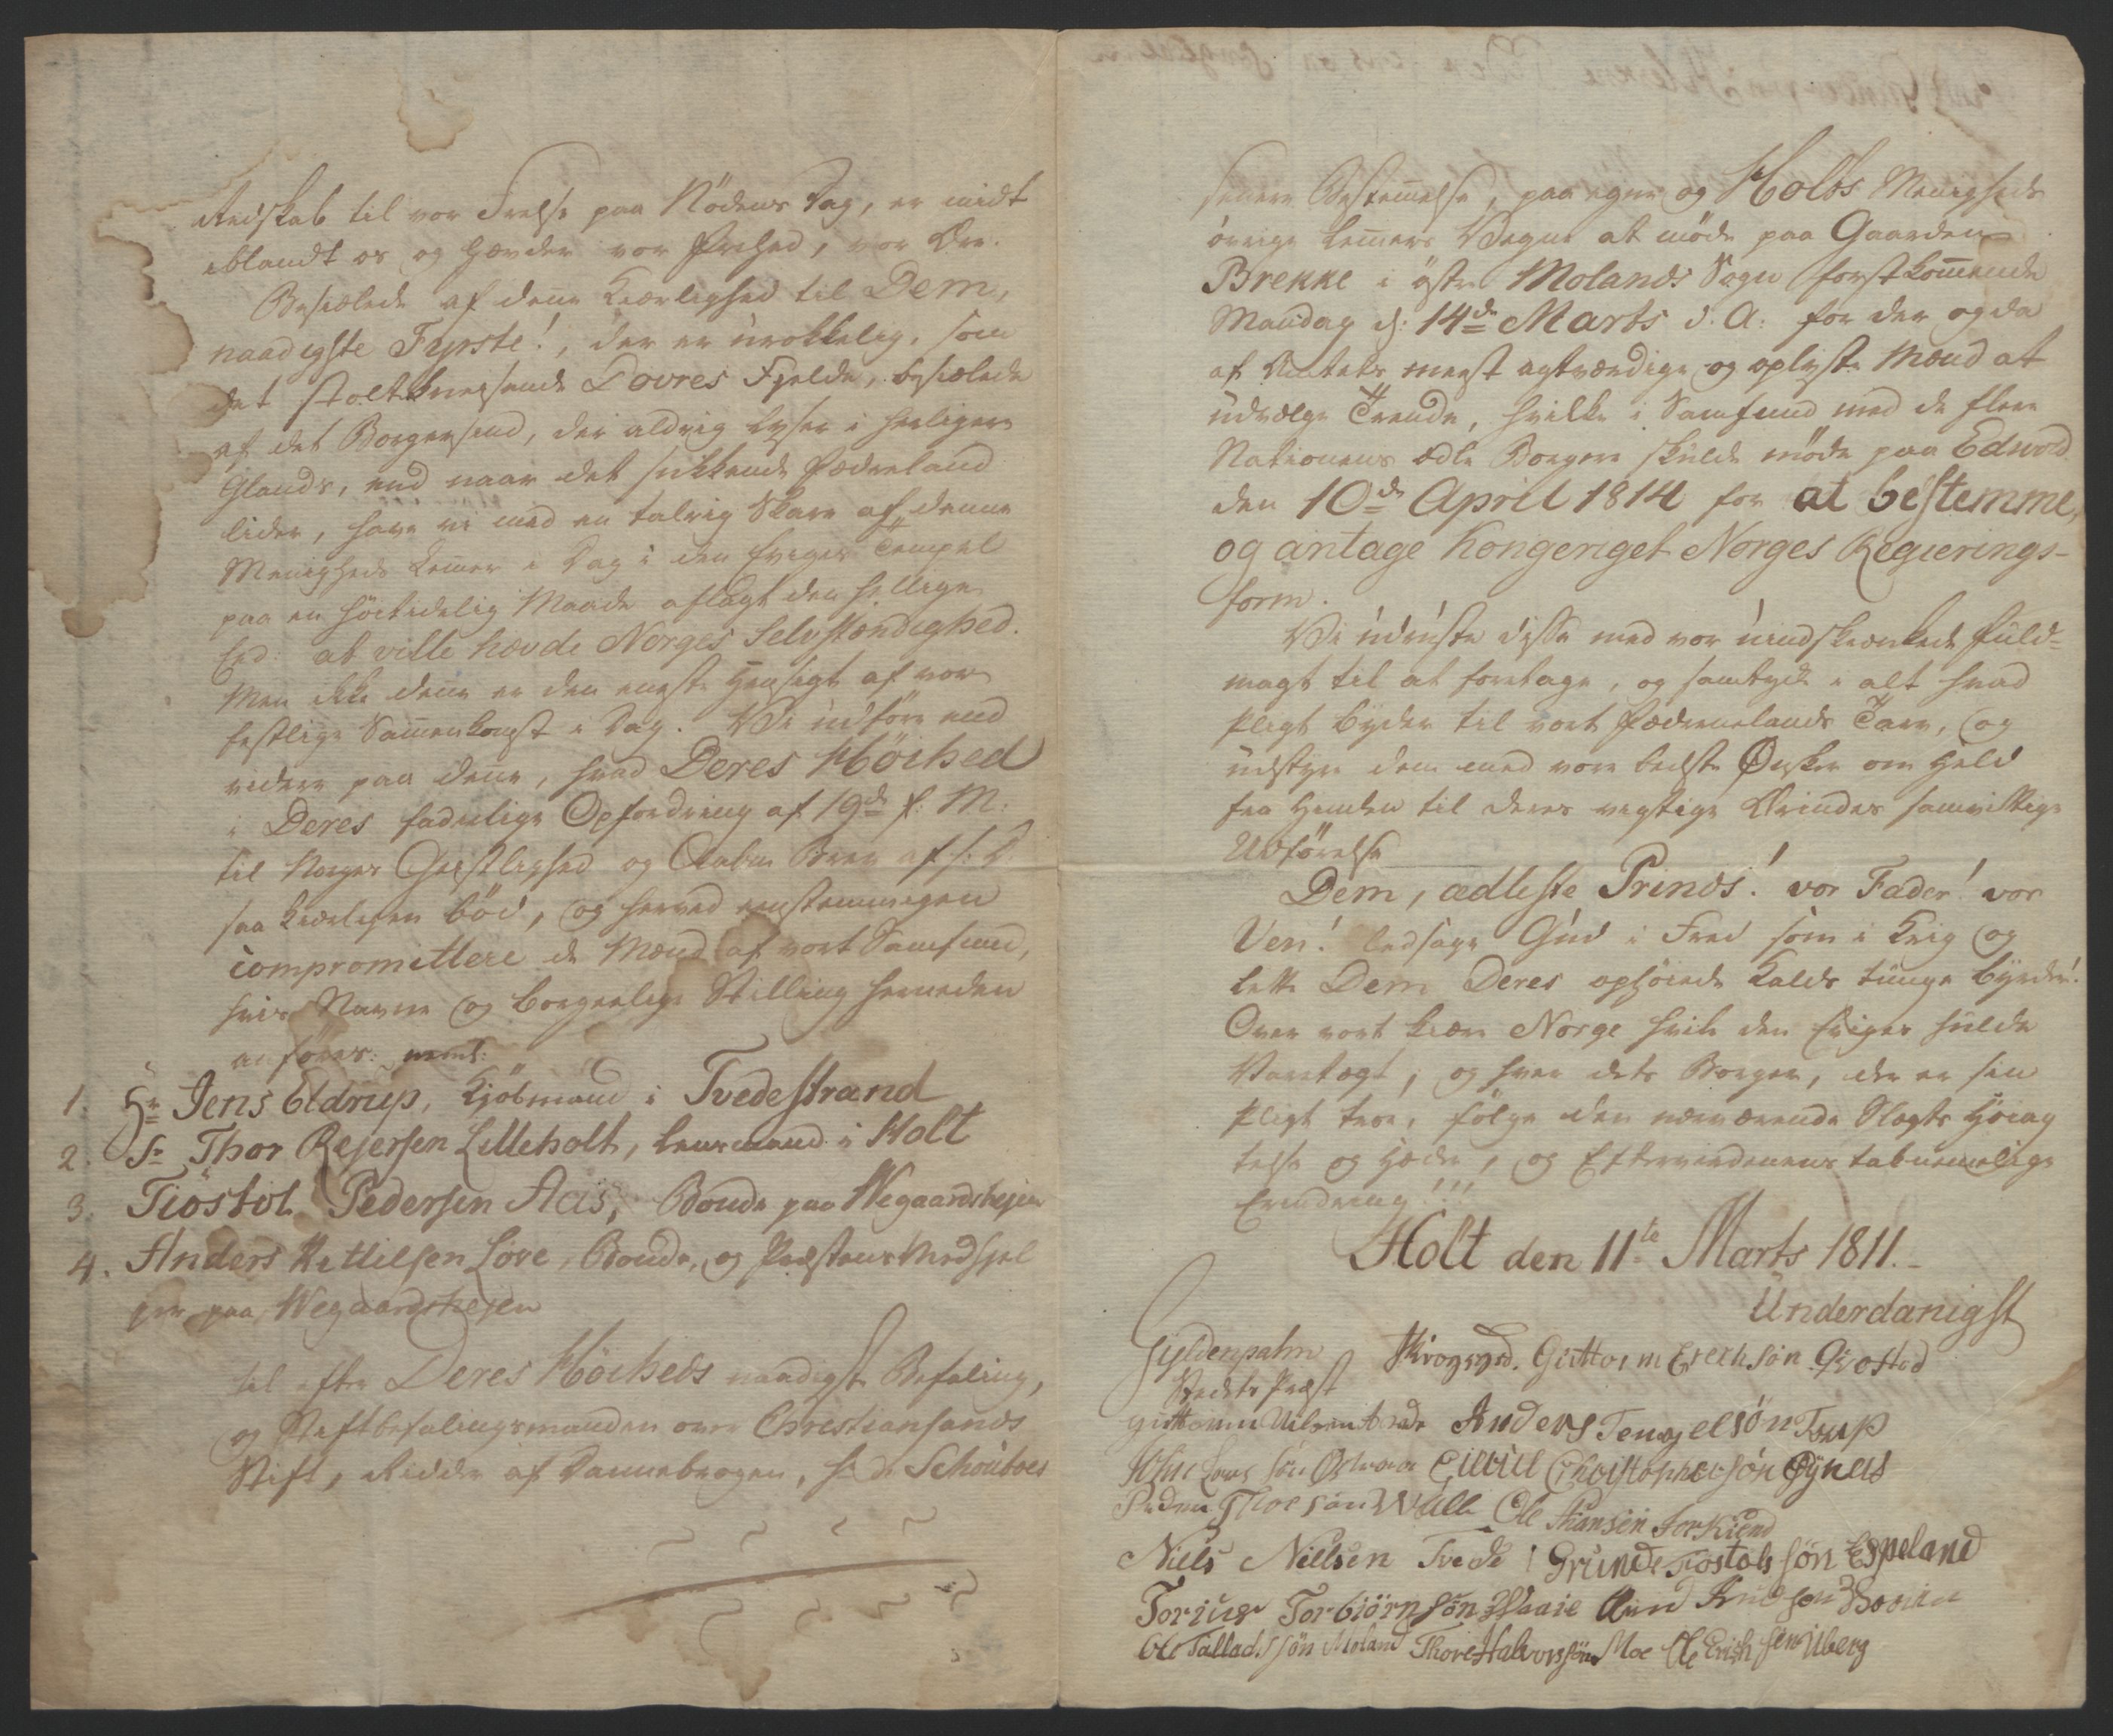 Redskab til vor Frelse paa Nödens Dag, er midt
iblandt os og hævder vor Frihed, vor Ære.
Besielede af denne Kierlighed til Dem,
naadigste Fyrste!, der er urokkelig, som
det stoltkneisende Dovres Fjelde, besielede
af det Borgersind, der aldrig lyser i herligere
Glands, end naar det sukkende Fædreland
lider, have vi med en talrig Skare af denne
Menigheds Lemmer i Dag i den Eviges Tempel
paa en höitidelig Maade aflagt den hellige
Eed: at ville hævde Norges Selvstændighed.
Men ikke denne er den eneste Hensigt af vor
festlige Sammenkomst i Dag. Vi udföre end
videre paa denne, hvad Deres Höihed
i Deres faderlige Opfordring af 19de f: M:
til Norges Geistlighed og Aabne Brev af s: D.
saa kierligen böd, og herved eenstemmigen
compromittere de Mænd af vort Samfund,
hvis Navne og borgerlige Stilling herneden
anföres: neml:
1. Hr Jens Eldrup, Kjöbmand i Tvedestrand
2. Sr Thor Rejersen Lilleholt, Lensmand i Holt
3. Tiöstol Pedersen Aas, Bonde paa Wegaardshejen
4. Anders Kettilsen Löve, Bonde, og Præstens Medhjel
per paa Wegaardshejen
til efter Deres Höiheds naadigste Befaling,
og Stiftbefalingsmanden over Christiansands
Stift, Ridder af Dannebrogen, Hr Schouboes
senere Bestemmelse, paa egne og Holts Menigheds
övrige Lemmers Vegne at möde paa Gaarden
Brekke i östre Molands Sogn forstkommende
Mandag d: 14de Marts d. A: for der og da
af Amtets meest agtværdige og oplyste Mænd at
udvælge Trende, hvilke i Samfund med de flere
Nationens ædle Borgere skulde möde paa Edsvold
den 10de April 1814 for at bestemme,
og antage Kongeriget Norges Regierings-
form.
Vi udruste disse med vor uindskrænkede Fuld-
magt til at foretage, og samtykke i alt hvad
Pligt byder til vort Fædrenelands Tarv, og
udstyre dem med vore bedste Önsker om Held
fra Himlen til deres vigtige Ærindes samvittige
Udförelse
Dem, ædleste Prinds! vor Fader! vor
Ven! ledsage Gud i Fred som i Krig og
lette Dem Deres ophöiede Kalds tunge Byrde!
Over vort kiere Norge hvile den Eviges hulde
Varetægt, og hver dets Borger, der er sin
Pligt troe, fölge den nærværende Slægts Höiag
telse og Hæder, og Efterverdenens taknemmelige
Erindring!!!
Holt den 11te Marts 1811.
Underdanigst
Gyldenpalm Krogsgrd. Guttorm Erichsön Qvostad
Stedets Præst
Guttorm Nilsen Anders Tengelsön Torp
Lars sön Eivind Christophersön Dÿnes
Peder Thorsön Wall Ole Hansen
Niels Nielsen Tvede Gunde Tiöstols sön Espeland
Toriuer Torbiörnsön Knud Knudsen
Ole Tallachs sön Moland Thore Halvorssön Moe Ole Erichsen Uberg